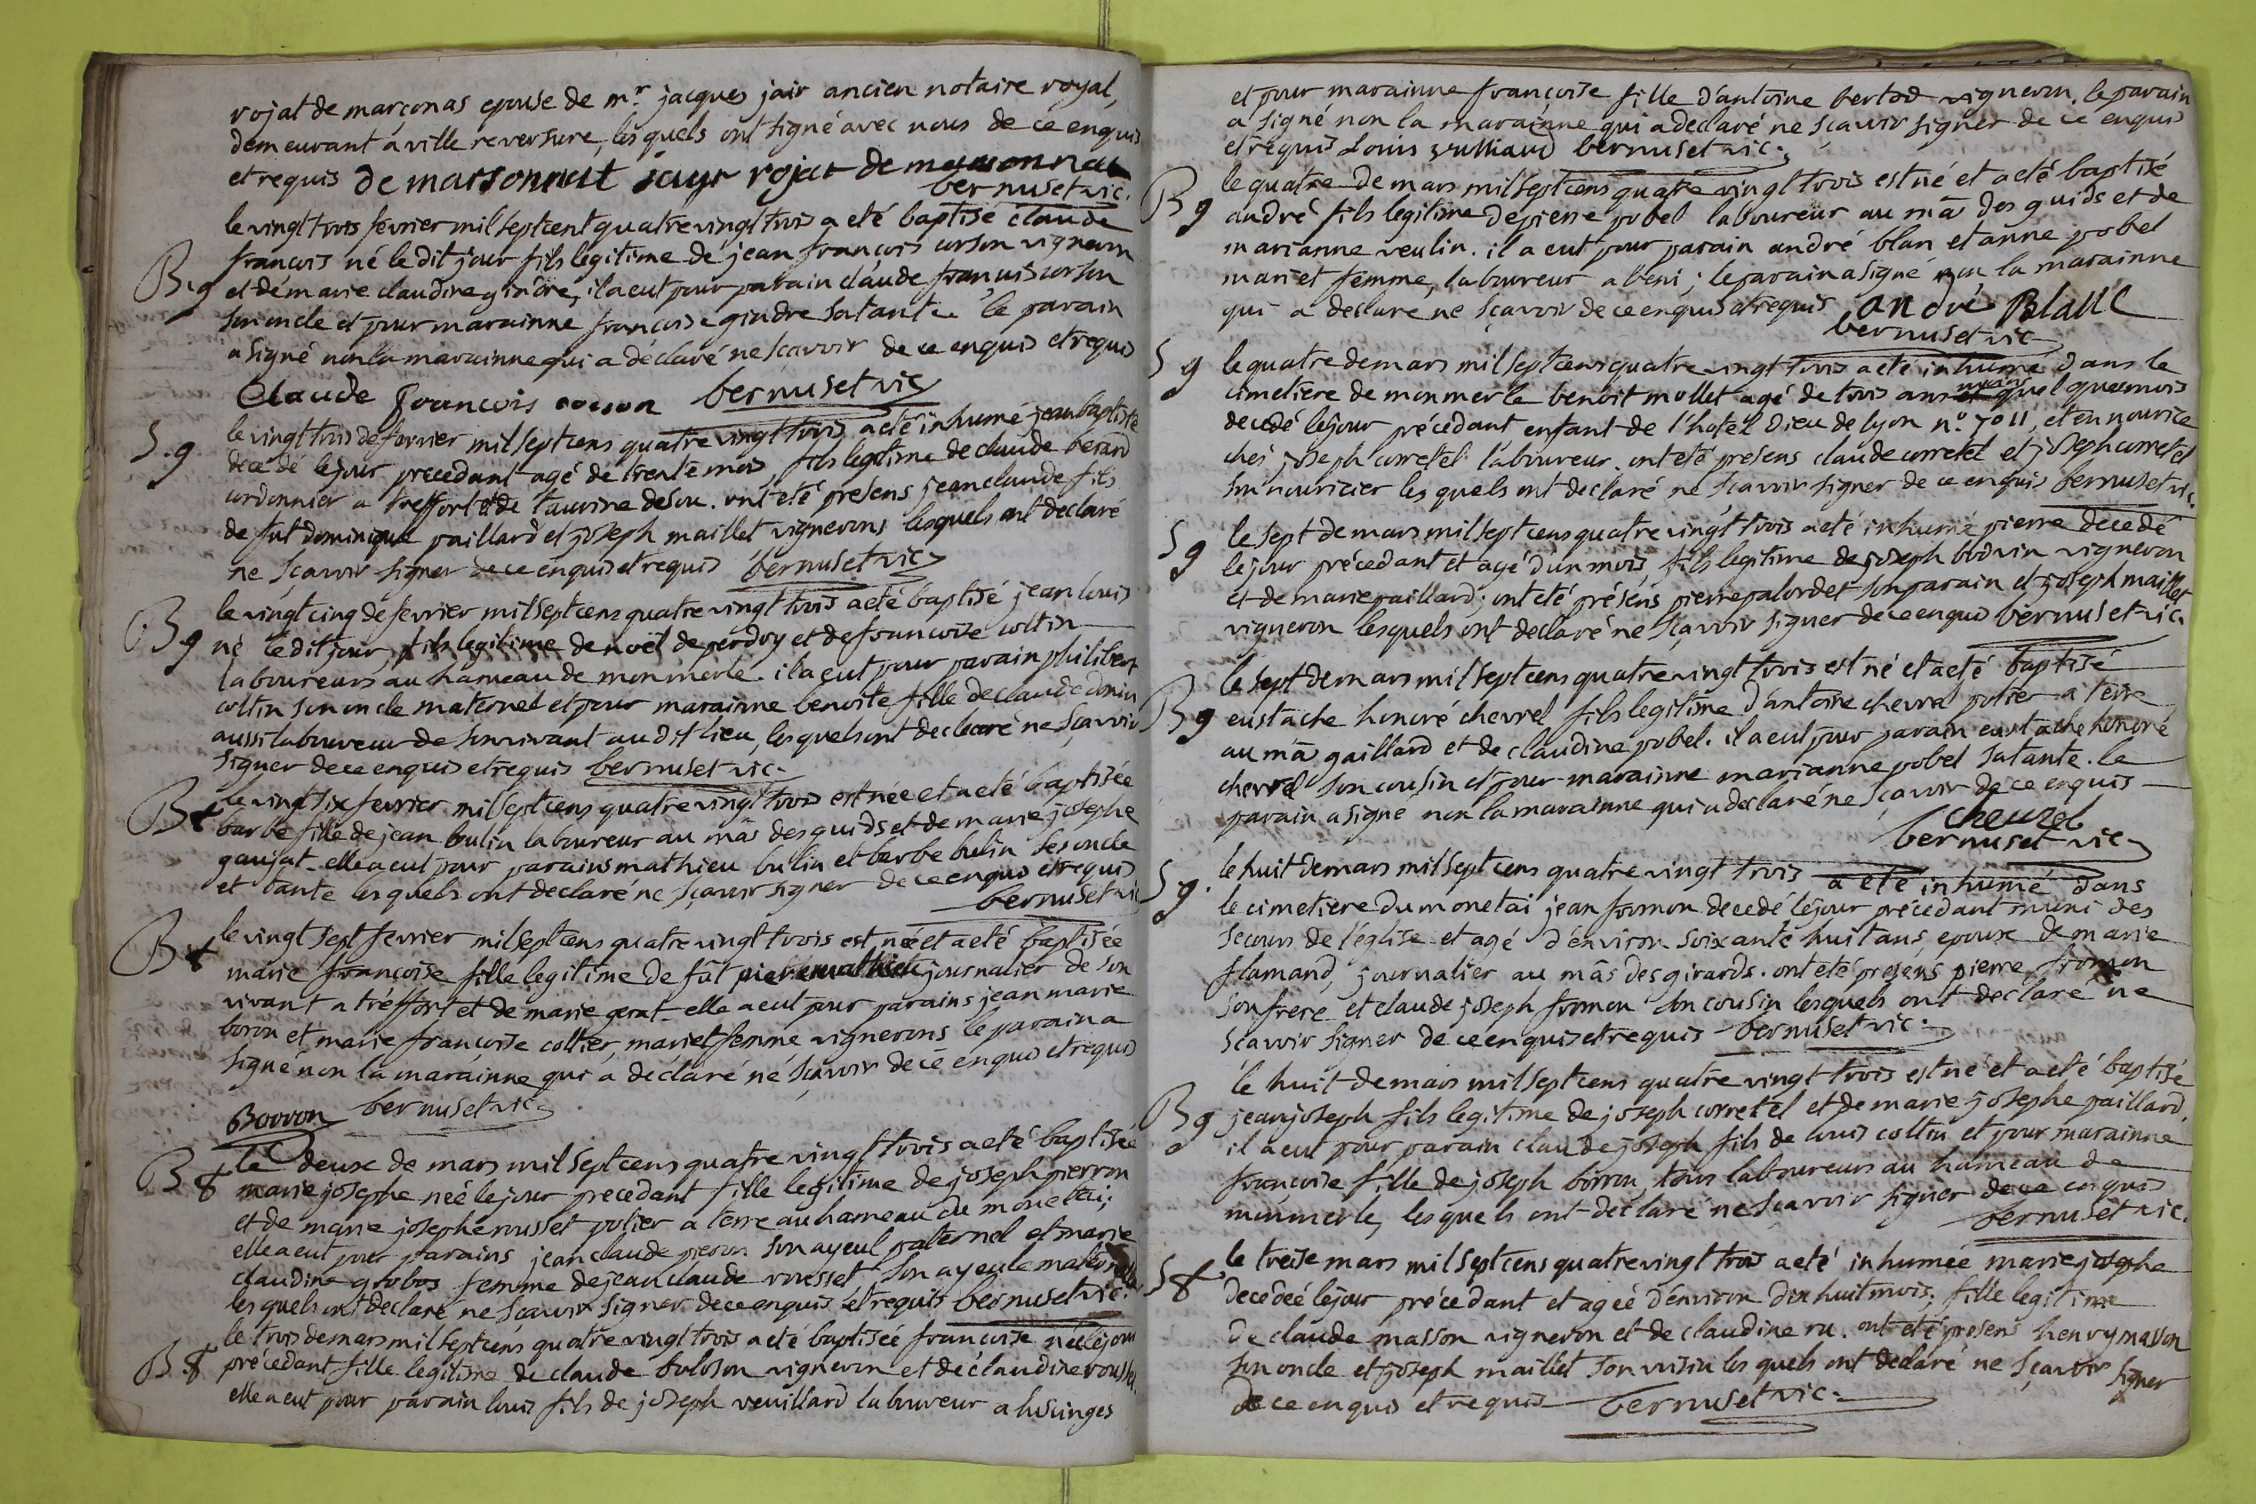 rojat de marçonas epouse de mr jacques jair ancien notaire royal,
demeurant a ville reversure, lesquels ont signé avec nous de ce enquis
et requis de marsonnat jayr rojat de marsonnat
bernuset vic.
le vingt trois fevrier mil sept cent quatre vingt trois a eté baptisé claude
B. g françois né le dit jour fils legitime de jean françois corson vigneron
et de marie claudine gindre, il a eut pour parain claude françois corson
son oncle et pour marainne françoise gindre sa tante. le parain
a signé non la marainne qui a déclaré ne sçavoir de ce enquis et requis
Claude françois corson bernuset vic
le vingt trois de fevrier mil sept cens quatre vingt trois a eté inhumé jean baptiste
S. g decedé le jour precedant agé de trente mois, fils legitime de claude berard
cordonnier a treffort et de taurine desou. ont eté presens jean claude fils
de fut dominique paillard et joseph maillet vignerons lesquels ont declaré
ne sçavoir signer de ce enquis et requis bernuset vic
le vingt cinq de fevrier mil sept cens quatre vingt trois a eté baptisé jean louis
B g né le dit jour, fils legitime de noël de perdoy et de francoise coltin
laboureurs au hameau de monmerle. il a eut pour parain philibert
coltin son oncle maternel et pour marainne benoite fille de claude donin
aussi laboureur de son vivant au dit lieu, lesquels ont declaré ne sçavoir
signer de ce enquis et requis bernuset vic.
B f le vingt six fevrier mil sept cens quatre vingt trois est née et a eté baptisée
barbe fille de jean bulin laboureur au mâs des guids et de marie josephe
gaujat. elle a eut pour parains mathieu bulin et barbe bulin ses oncle
et tante lesquels ont declaré ne sçavoir signer de ce enquis et requis
bernuset vic
B f le vingt sept fevrier mil sept cens quatre vingt trois est née et a eté baptisée
marie françoise fille legitime de fût pierre mathieu journalier de son
vivant a tréffort et de marie gerat. elle a eut pour parains jean marie
boron et marie françoise coltier, mari et femme vignerons le parain a
signé non la marainne qui a déclaré né sçavoir de ce enquis et requis
Borron bernuset vic
le deux de mars mil sept cens quatre vingt trois a eté baptisée
B f marie josephe née le jour precedant fille legitime de joseph pierron
et de marie josephe rousset potier a terre au hameau du monettai;
elle a eut pour parains jean claude pieron son ayeul paternel et marie
claudine grobos femme de jean claude rousset, son ayeule maternelle
lesquels ont declaré ne sçavoir signer de ce enquis et requis bernuset vic.
le trois de mars mil sept cens quatre vingt trois a eté baptisée francoise née le jour
B f précedant fille legitime de claude buloson vigneron et de claudine rousset.
elle a eut pour parain louis fils de joseph veuillard laboureur a lusinges
et pour marainne françoise fille d'antoine bertod vigneron. le parain
a signé non la marainne qui a declaré ne sçavoir signer de ce enquis
et requis Louis vulliaud bernuset vic.
B g le quatre de mars mil sept cens quatre vingt trois est né et a eté baptisé
andré fils legitime de pierre pobel laboureur au mâ des guids et de
marianne veulin. il a eut pour parain andré blan et anne pobel
mari et femme, laboureur a beni; le parain a signé non la marainne
qui a declaré ne sçavoir de ce enquis et requis andré Blanc
bernuset vic
S g le quatre de mars mil sept cens quatre vingt trois a eté inhumé dans le
cimetiere de monmerle benoit mollet agé de trois ans moins quelques mois
decedé le jour précédant enfant de l'hotel Dieu de lyon no. 7011, et en nourice
chés joseph corretel laboureur. ont eté presens claude corretel et joseph corretel
son nouricier lesquels ont declaré ne sçavoir signer de ce enquis bernuset vic.
S g le sept de mars mil sept cens quatre vingt trois a eté inhumé pierre decedé
le jour précedant et agé d'un mois fils legitime de joseph bodvin vigneron
et de marie paillard; ont eté présens pierre palordet son parain et joseph maillet
vigneron lesquels ont declaré ne sçavoir signer de ce enquis bernuset vic.
le sept de mars mil sept cens quatre vingt trois est né et a eté baptisé
B g eustache honoré chevrel fils legitime d'antoine chevrel potier a terre
au mâ gaillard et de claudine pobel. il a eut pour parain eustache honoré
chevrel son cousin et pour marainne marianne pobel sa tante. le
parain a signé non la marainne qui a declaré ne sçavoir de ce enquis
chevrel
bernuset vic
S g. le huit de mars mil sept cens quatre vingt trois a eté inhumé dans
le cimetiere du monetai jean fromon decedé le jour précedant muni des
secours de l'église et agé d'environ soixante huit ans, epoux de marie
flamand, journalier au mâs des girards. ont eté presens pierre fromon
son frere et claude joseph fromon son cousin lesquels ont declaré ne
sçavoir signer de ce enquis et requis bernuset vic.
le huit de mars mil sept cens quatre vingt trois est né et a eté baptisé
B g jean joseph fils legitime de joseph corretel et de marie josephe paillard.
il a eut pour parain claude joseph fils de louis coltin et pour marainne
françoise fille de joseph borron, tous laboureurs au hameau de
monmerle, lesquels ont declaré ne sçavoir signer de ce enquis
bernuset vic.
S f le treise mars mil sept cens quatre vingt trois a eté inhumée marie josephe
decedée le jour précedant et agée d'environ dix huit mois, fille legitime
de claude masson vigneron et de claudine ru. ont eté presens henry masson
son oncle et joseph maillet son voisin lesquels ont declaré ne sçavoir signer
de ce enquis et requis bernuset vic.